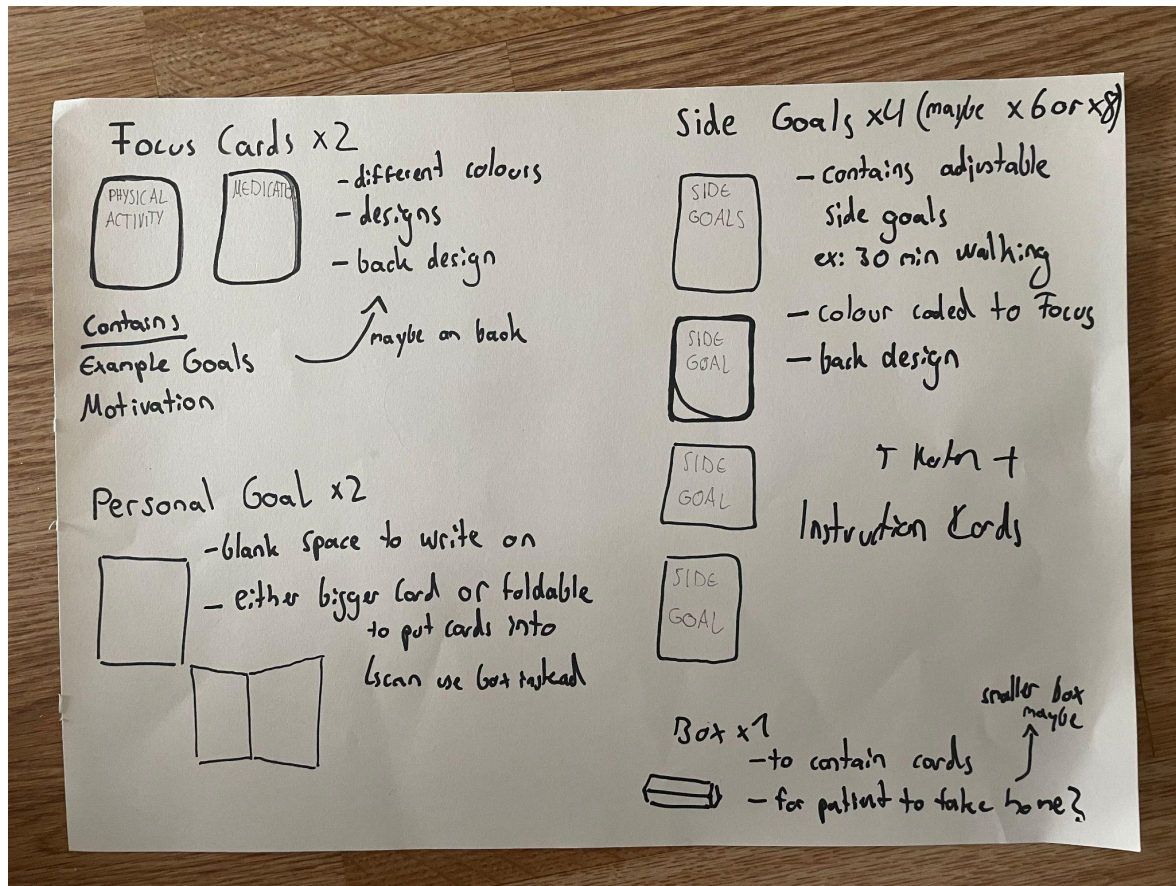 Focus Cards x2
PHYSICAL
ACTIVITY
MEDICATI
- different colours
- designs
- back design
Contains
Example Goals
Motivation
maybe on back
Personal Goal x2
- blank space to write on
- either bigger card or foldable
to put cards into
can use box instead
Side Goals x4 (maybe x6 or x8)
SIDE
GOALS
- contains adjustable
side goals
ex: 30 min walking
- colour coded to Focus
- back design
SIDE
GOAL
SIDE
GOAL
SIDE
GOAL
Instruction Cards
Box x1
- to contain cards
- for patient to take home?
smaller box
maybe